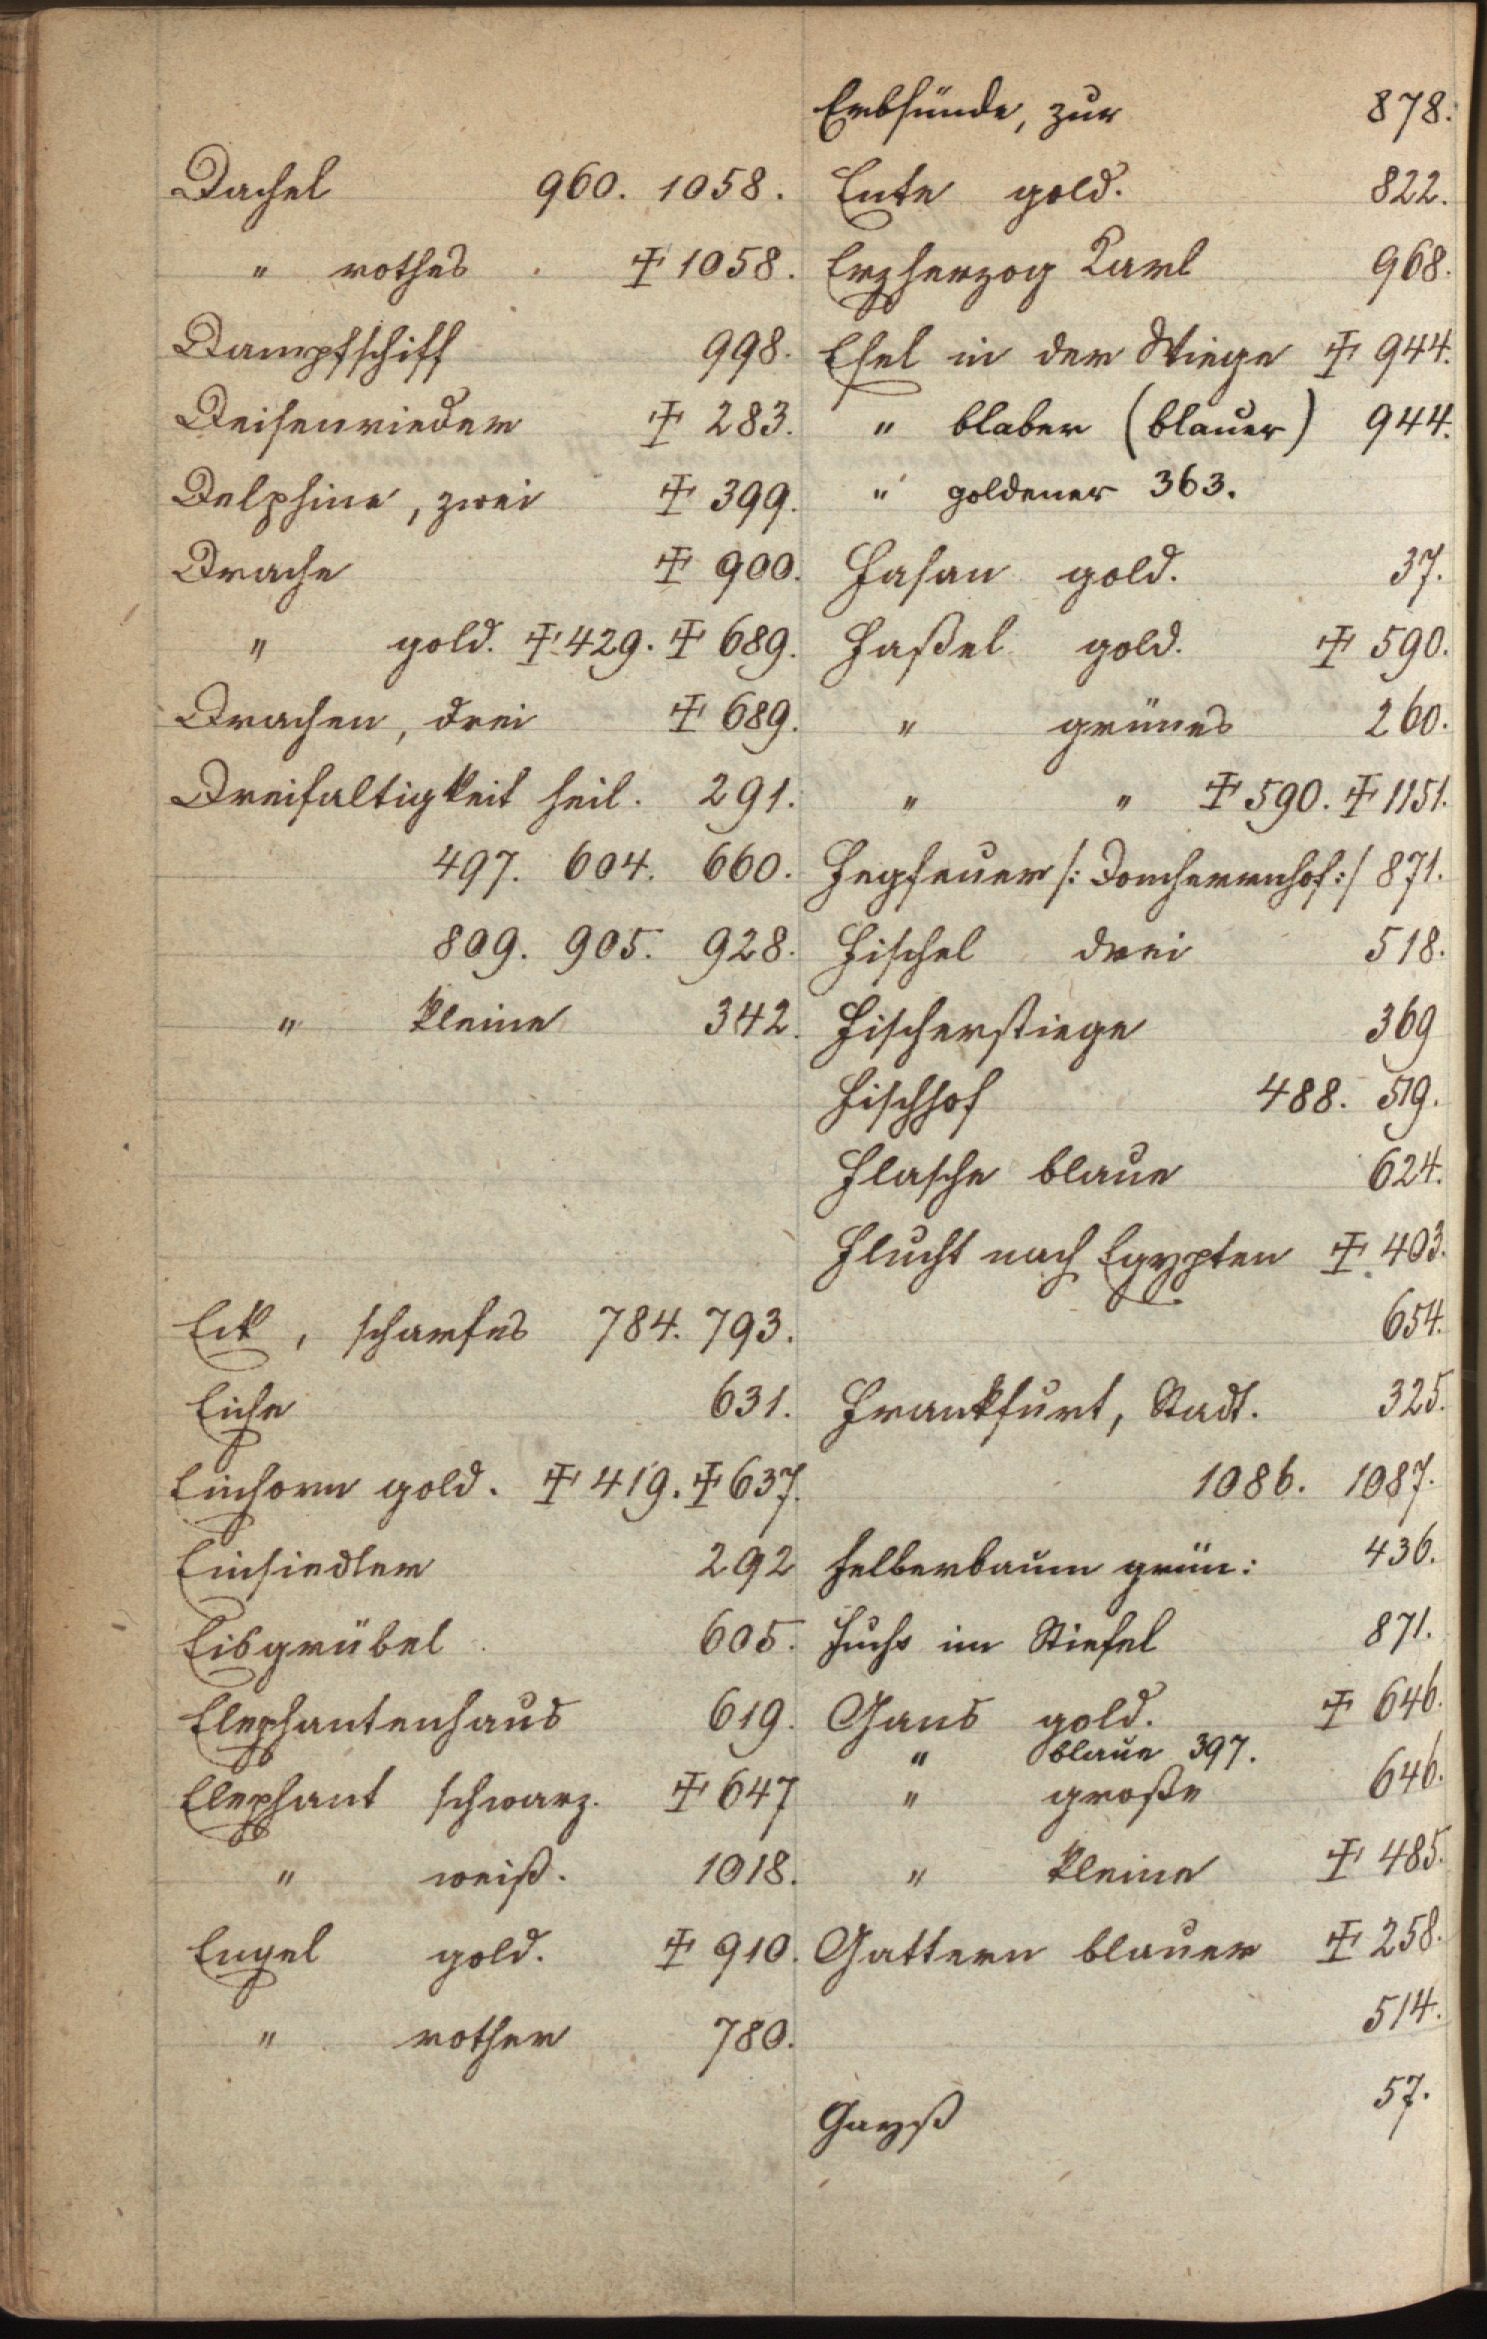 Dachel 960. 1058.
" rothes ‡ 1058.
Dampfschiff 998.
Deisenrieder ‡ 283.
Delphine, zwei ‡ 399.
Drache ‡ 900.
" gold. ‡ 429. ‡ 689.
Drachen, drei ‡ 689.
Dreifaltigkeit heil. 291.
497. 604. 660.
809. 905. 928.
" kleine 342.
Eck, scharfes 784. 793.
Eiche 631.
Einhorn gold. ‡ 419. ‡ 637.
Einsiedler 292
Eisgrübel 605.
Elephantenhaus 619.
Elephant schwarz. ‡ 647
" weiß. 1018.
Engel gold. ‡ 910.
" rother 780.
Erbsünde, zur 878.
Ente gold. 822.
Erzherzog Karl 968.
Esel in der Wiege ‡ 944.
" blaber (blauer) 944.
" goldener 363.
Fasan gold. 37.
Faßel gold. ‡ 590.
" grünes 260.
" " ‡ 590. ‡ 1151.
Fegfeuer /: Domherrnhof :/ 871.
Fischel drei 518.
Fischerstiege 369
Fischhof 488. 519.
Flasche blaue 624.
Flucht nach Egypten ‡ 403.
654.
Frankfurt, Stadt. 325.
1086. 1087.
Felberbaum grün: 436.
Fuchs im Stiefel 871.
Gans gold. ‡ 646.
" blaue 397.
" große 646.
" kleine ‡ 485.
Gattern blauer ‡ 258.
514.
Gayß 57.